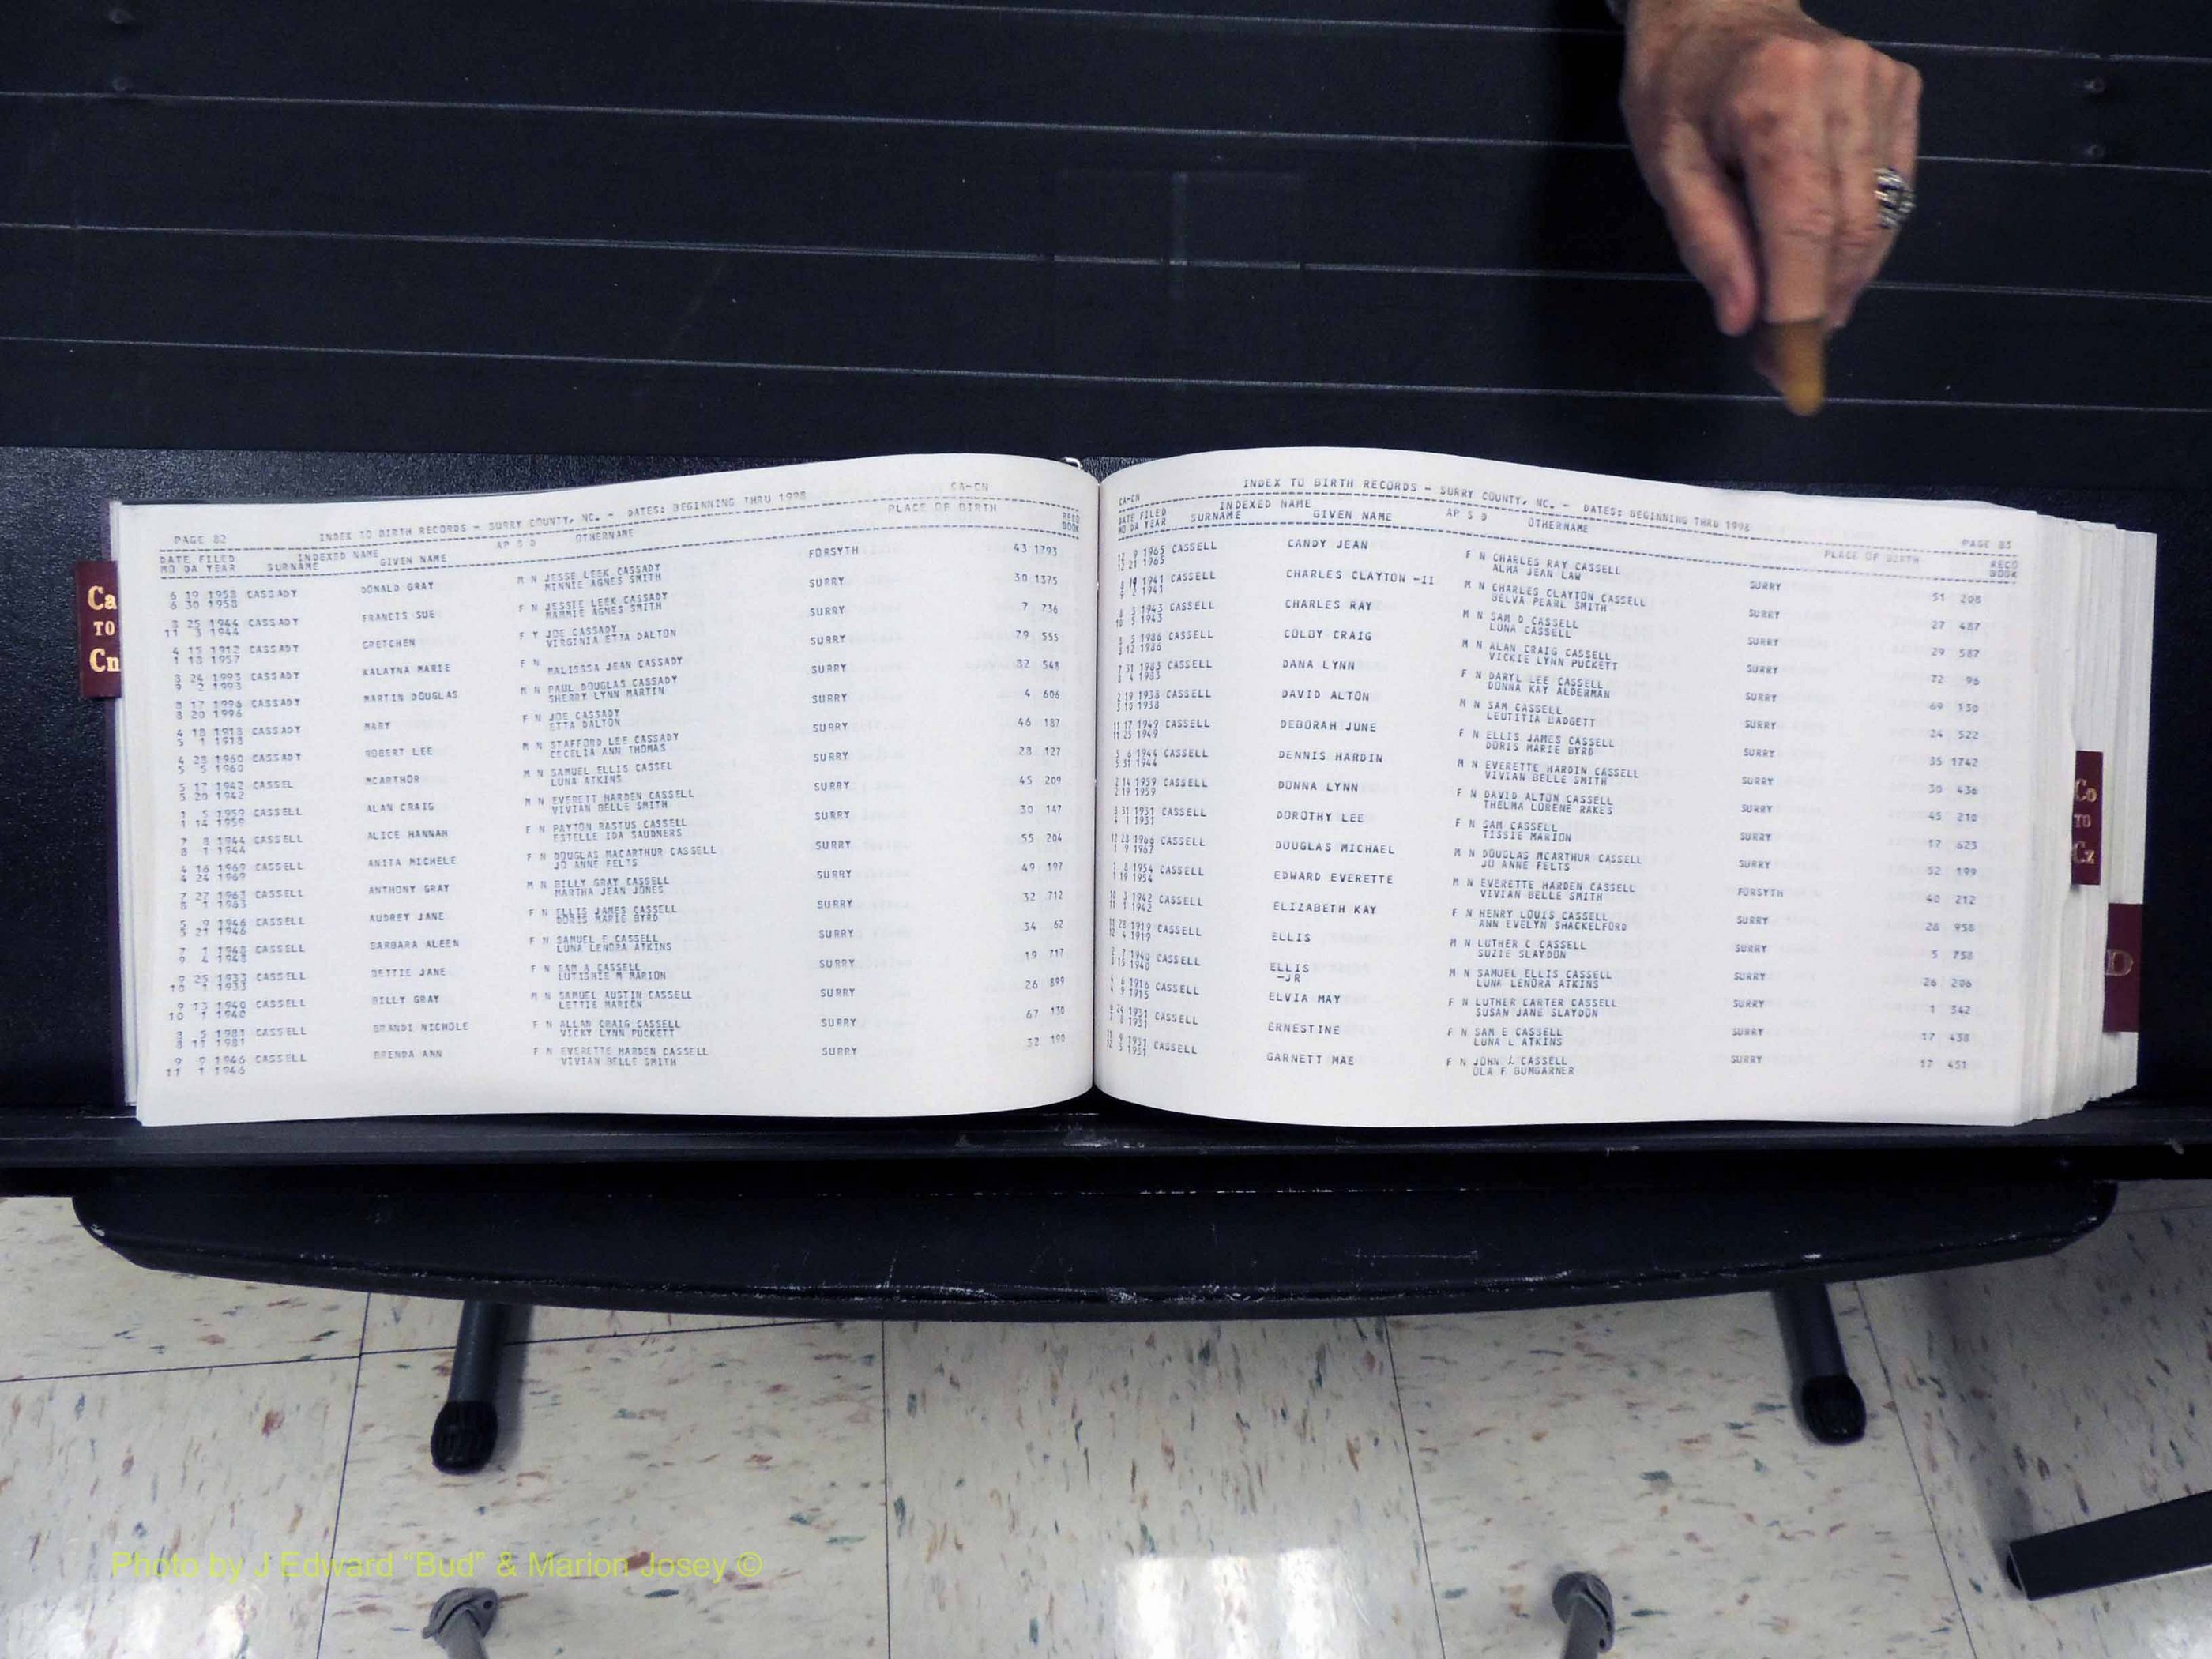 PAGE 82 INDEX TO BIRTH RECORDS - SURRY COUNTY, NC. - DATES: BEGINNING THRU 1998 CA-CN
DATE FILED INDEXED NAME AP S D OTHERNAME PLACE OF BIRTH RECD
MO DA YEAR SURNAME GIVEN NAME BOOK
6 19 1958 CASSADY DONALD GRAY M N JESSE LEEK CASSADY FORSYTH 43 1793
6 30 1958 MINNIE AGNES SMITH
8 25 1944 CASSADY FRANCIS SUE F N JESSIE LEEK CASSADY SURRY 30 1375
11 3 1944 MAMMIE AGNES SMITH
4 15 1912 CASSADY GRETCHEN F Y JOE CASSADY SURRY 7 736
1 18 1957 VIRGINIA ETTA DALTON
8 24 1993 CASSADY KALAYNA MARIE F N SURRY 79 555
9 2 1993 MALISSSA JEAN CASSADY
8 17 1996 CASSADY MARTIN DOUGLAS M N PAUL DOUGLAS CASSADY SURRY 82 548
8 20 1996 SHERRY LYNN MARTIN
4 18 1918 CASSADY MARY F N JOE CASSADY SURRY 4 606
5 1 1918 ETTA DALTON
4 28 1960 CASSADY ROBERT LEE M N STAFFORD LEE CASSADY SURRY 46 187
5 5 1960 CECELIA ANN THOMAS
5 17 1942 CASSEL MCARTHOR M N SAMUEL ELLIS CASSEL SURRY 28 127
5 20 1942 LUNA ATKINS
1 5 1959 CASSELL ALAN CRAIG M N EVERETT HARDEN CASSELL SURRY 45 209
1 14 1959 VIVIAN BELLE SMITH
7 8 1944 CASSELL ALICE HANNAH F N PAYTON RASTUS CASSELL SURRY 30 147
8 1 1944 ESTELLE IDA SAUDNERS
4 16 1969 CASSELL ANITA MICHELE F N DOUGLAS MACARTHUR CASSELL SURRY 55 204
4 24 1969 JO ANNE FELTS
7 27 1963 CASSELL ANTHONY GRAY M N BILLY GRAY CASSELL SURRY 49 197
8 1 1963 MARTHA JEAN JONES
5 9 1946 CASSELL AUDREY JANE F N ELLIS JAMES CASSELL SURRY 32 712
5 21 1946 DORIS MARIE BYRD
7 1 1948 CASSELL BARBARA ALEEN F N SAMUEL E CASSELL SURRY 34 62
9 4 1948 LUNA LENORA ATKINS
9 25 1933 CASSELL BETTIE JANE F N SAM A CASSELL SURRY 19 717
10 1 1933 LUTISHIE M MARION
9 13 1940 CASSELL BILLY GRAY M N SAMUEL AUSTIN CASSELL SURRY 26 899
10 1 1940 LETTIE MARION
8 5 1981 CASSELL BRANDI NICHOLE F N ALLAN CRAIG CASSELL SURRY 67 130
8 11 1981 VICKY LYNN PUCKETT
9 9 1946 CASSELL BRENDA ANN F N EVERETTE HARDEN CASSELL SURRY 32
11 1 1946 VIVIAN BELLE SMITH
CA-CN INDEX TO BIRTH RECORDS - SURRY COUNTY, NC. - DATES: BEGINNING THRU 1998 PAGE 83
DATE FILED INDEXED NAME AP S D OTHERNAME PLACE OF BIRTH RECD
MO DA YEAR SURNAME GIVEN NAME BOOK
12 9 1965 CASSELL CANDY JEAN F N CHARLES RAY CASSELL SURRY 51 208
12 21 1965 ALMA JEAN LAW
8 19 1941 CASSELL CHARLES CLAYTON -II M N CHARLES CLAYTON CASSELL SURRY 27 487
9 2 1941 BELVA PEARL SMITH
8 3 1943 CASSELL CHARLES RAY M N SAM D CASSELL SURRY 29 587
10 5 1943 LUNA CASSELL
8 5 1986 CASSELL COLBY CRAIG M N ALAN CRAIG CASSELL SURRY 72 96
8 12 1986 VICKIE LYNN PUCKETT
7 31 1983 CASSELL DANA LYNN F N DARYL LEE CASSELL SURRY 69 130
8 4 1983 DONNA KAY ALDERMAN
2 19 1938 CASSELL DAVID ALTON M N SAM CASSELL SURRY 24 522
3 10 1938 LEUTITIA BADGETT
11 17 1949 CASSELL DEBORAH JUNE F N ELLIS JAMES CASSELL SURRY 35 1742
11 25 1949 DORIS MARIE BYRD
5 6 1944 CASSELL DENNIS HARDIN M N EVERETTE HARDIN CASSELL SURRY 30 436
5 31 1944 VIVIAN BELLE SMITH
2 14 1959 CASSELL DONNA LYNN F N DAVID ALTON CASSELL SURRY 45 210
2 19 1959 THELMA LORENE RAKES
3 31 1931 CASSELL DOROTHY LEE F N SAM CASSELL SURRY 17 623
4 1 1931 TISSIE MARION
12 28 1966 CASSELL DOUGLAS MICHAEL M N DOUGLAS MCARTHUR CASSELL SURRY 52 199
1 9 1967 JO ANNE FELTS
1 8 1954 CASSELL EDWARD EVERETTE M N EVERETTE HARDEN CASSELL FORSYTH 40 212
1 19 1954 VIVIAN BELLE SMITH
10 3 1942 CASSELL ELIZABETH KAY F N HENRY LOUIS CASSELL SURRY 28 958
11 1 1942 ANN EVELYN SHACKELFORD
11 28 1919 CASSELL ELLIS M N LUTHER C CASSELL SURRY 5 758
12 4 1919 SUZIE SLAYDON
2 7 1940 CASSELL ELLIS M N SAMUEL ELLIS CASSELL SURRY 26 206
3 15 1940 -JR LUNA LENDRA ATKINS
4 6 1916 CASSELL ELVIA MAY F N LUTHER CARTER CASSELL SURRY 1 342
4 9 1915 SUSAN JANE SLAYDON
6 24 1931 CASSELL ERNESTINE F N SAM E CASSELL SURRY 17 438
7 8 1931 LUNA L ATKINS
11 9 1931 CASSELL GARNETT MAE F N JOHN L CASSELL SURRY 17 451
12 5 1931 OLA F BUMGARNER
Ca
TO
Cn
Co
TO
Cz
D
Photo by J Edward “Bud” & Marion Josey ©